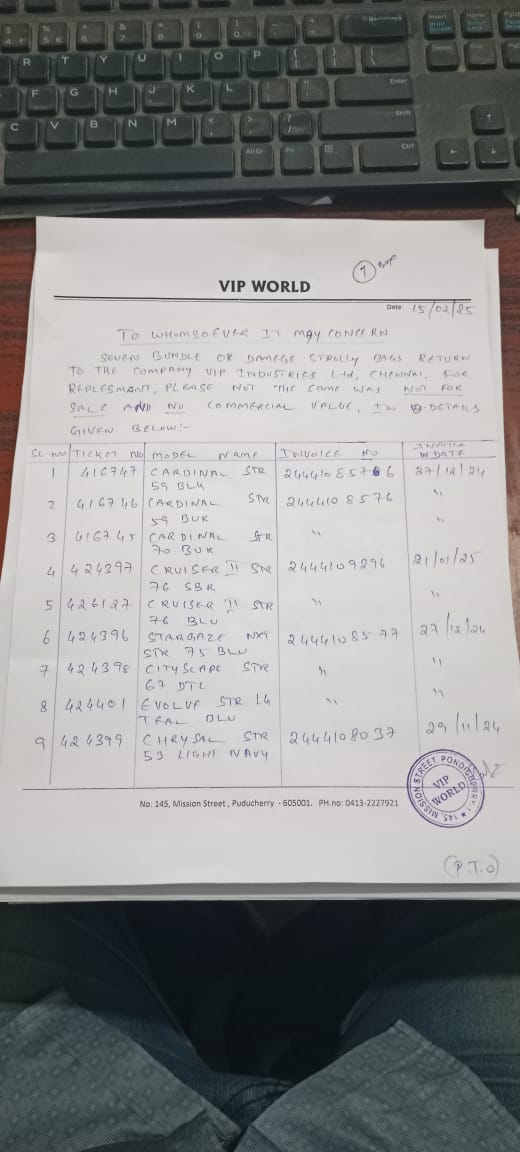 R T Y U I O P
F G H J K L
Enter
C V B N M
Shift
Alt Gr Fn Ctrl
7
VIP WORLD
Date: 15/02/25
TO WHOMSOEVER IT MAY CONCERN
SEVEN BUNDLE OR DAMEGE STROLLY BAGS RETURN
TO THE COMPANY VIP INDUSTRIES Ltd, CHENNAI, FOR
REPLESMANT, PLEASE NOT THE CAME WAS NOT FOR
SALE AND NO COMMERCIAL VALUE, IN DETAILS
GIVEN BELOW:-
SL NO TICKET NO MODEL NAME INVOICE NO INVOICE DATE
1 416747 CARDINAL STR 59 BLK 27/12/24
2 416746 CARDINAL STR 59 BUR 244410 8576 "
3 416745 CARDINAL STR 70 BUR " "
4 424397 CRUISER II STR 76 SBR 2444109296 21/01/25
5 426127 CRUISER II STR 76 BLU " "
6 424396 STARGAZE NXT STR 75 BLU 2444108577 27/12/24
7 424398 CITYSCAPE STR 67 DTL " "
8 424401 EVOLVE STR L4 TEAL BLU " "
9 424399 CHRYSAL STR 53 LIGHT NAVY 2444108037 29/11/24
No: 145, Mission Street, Puducherry - 605001. PH.no: 0413-2227921
VIP WORLD
145, MISSION STREET, PONDICHERRY-1
(P.T.O)